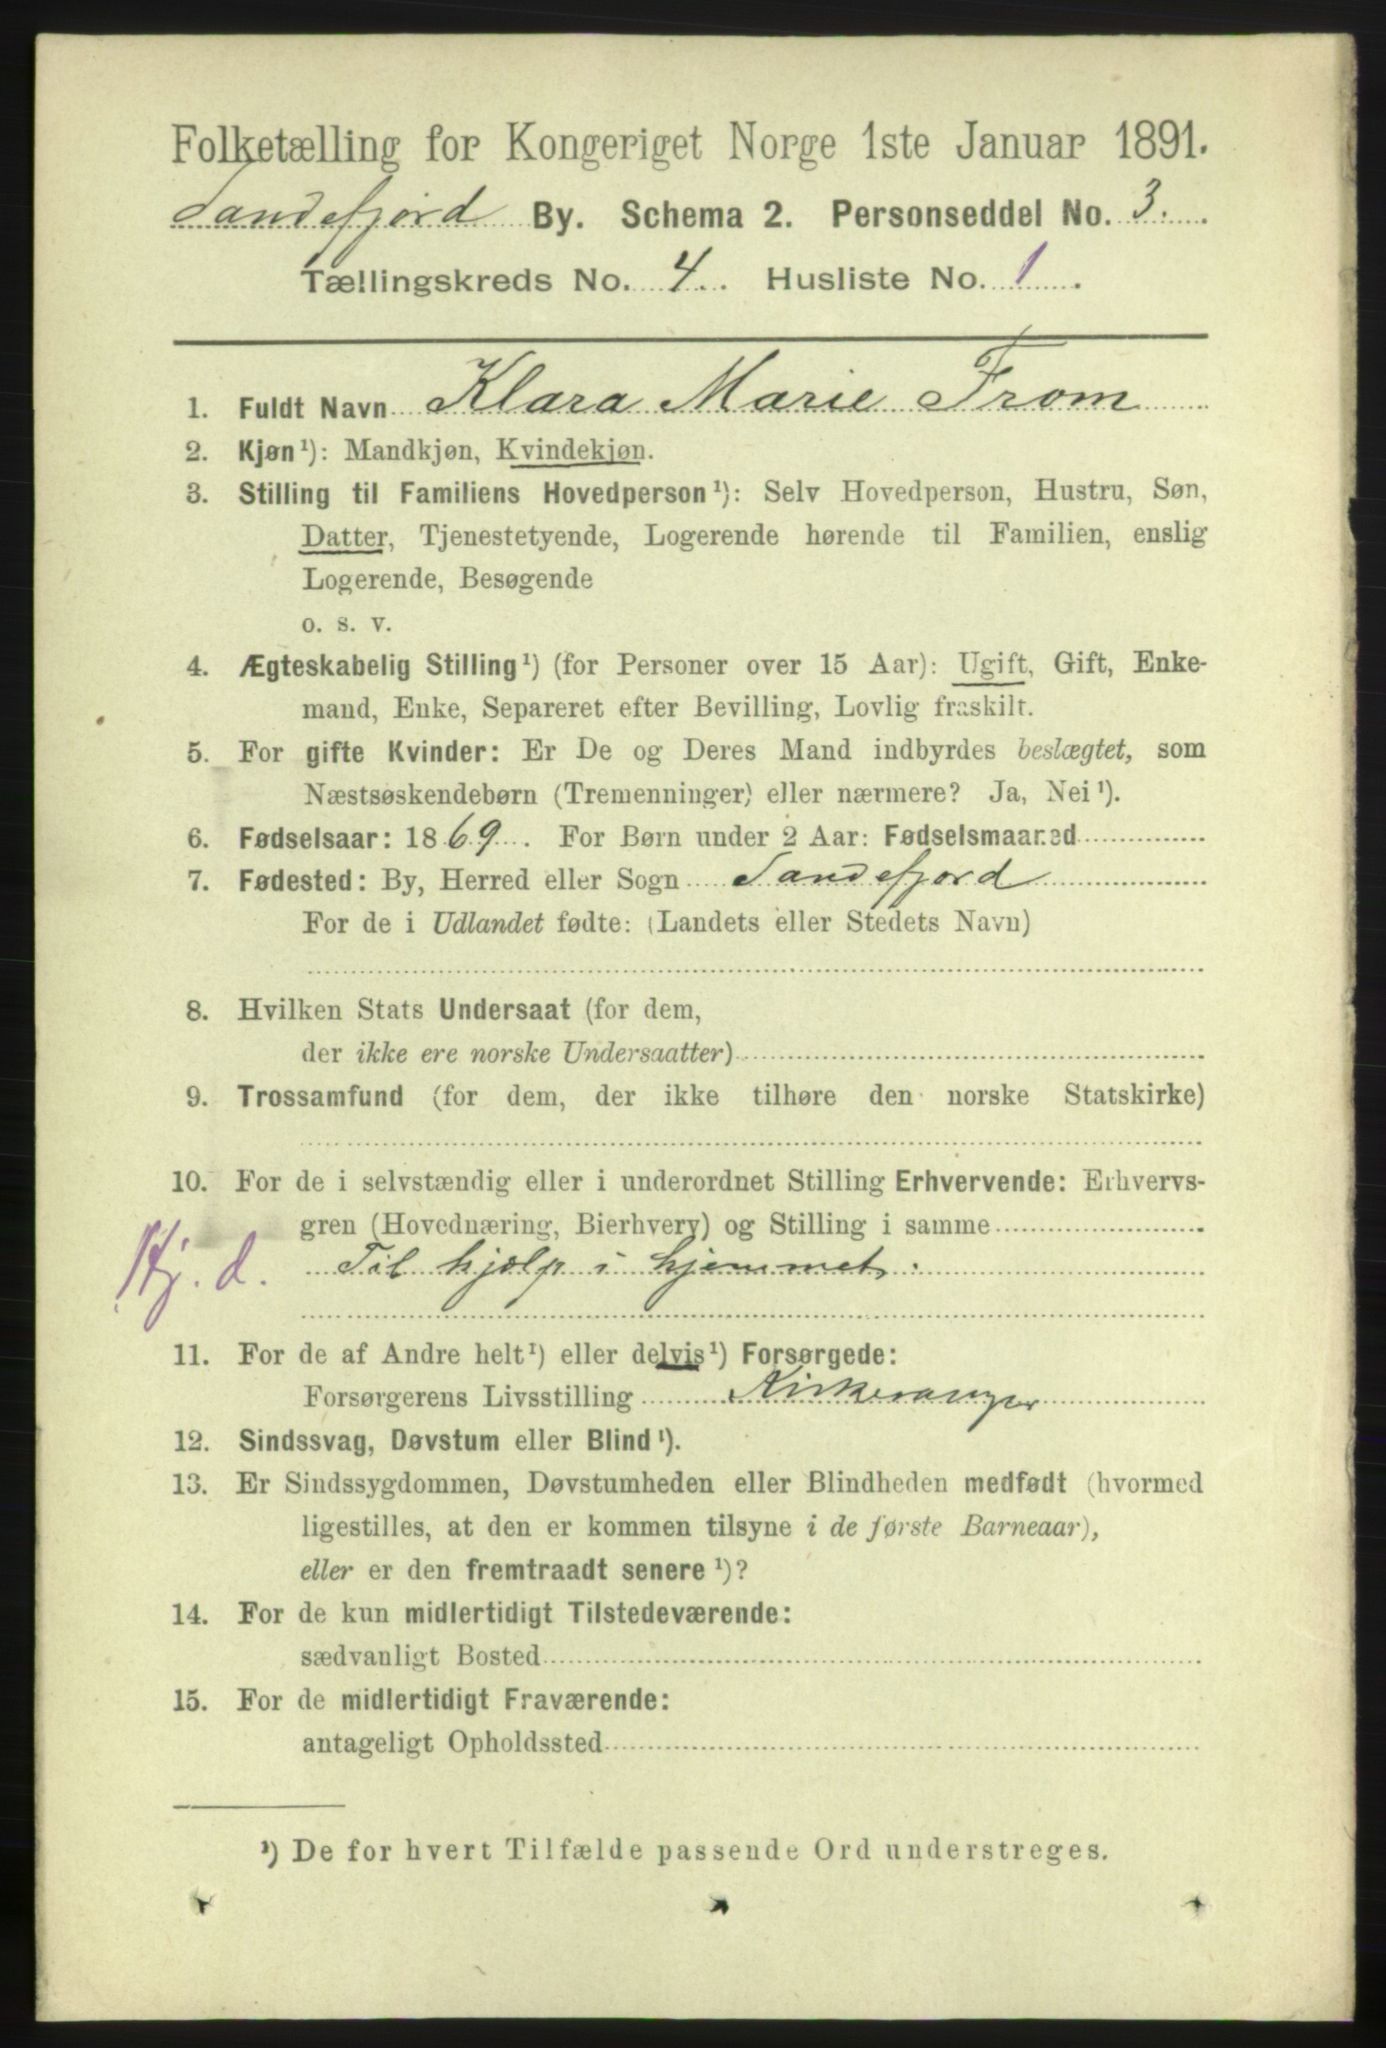 Folketælling for Kongeriget Norge 1ste Januar 1891.
Sandefjord By. Schema 2. Personseddel No. 3.
Tællingskreds No. 4. Husliste No. 1.
1. Fuldt Navn Klara Marie From
2. Kjøn¹): Mandkjøn, Kvindekjøn.
3. Stilling til Familiens Hovedperson¹): Selv Hovedperson, Hustru, Søn,
Datter, Tjenestetyende, Logerende hørende til Familien, enslig
Logerende, Besøgende
o. s. v.
4. Ægteskabelig Stilling¹) (for Personer over 15 Aar): Ugift, Gift, Enke-
mand, Enke, Separeret efter Bevilling, Lovlig fraskilt.
5. For gifte Kvinder: Er De og Deres Mand indbyrdes beslægtet, som
Næstsøskendebørn (Tremenninger) eller nærmere? Ja, Nei¹).
6. Fødselsaar: 1869. For Børn under 2 Aar: Fødselsmaaned
7. Fødested: By, Herred eller Sogn Sandefjord
For de i Udlandet fødte: (Landets eller Stedets Navn)
8. Hvilken Stats Undersaat (for dem,
der ikke ere norske Undersaatter)
9. Trossamfund (for dem, der ikke tilhøre den norske Statskirke)
10. For de i selvstændig eller i underordnet Stilling Erhvervende: Erhvervs-
gren (Hovednæring, Bierhverv) og Stilling i samme
Hj. d. Til hjælp i hjemmet.
11. For de af Andre helt¹) eller delvis¹) Forsørgede:
Forsørgerens Livsstilling Kirkesanger
12. Sindssvag, Døvstum eller Blind¹).
13. Er Sindssygdommen, Døvstumheden eller Blindheden medfødt (hvormed
ligestilles, at den er kommen tilsyne i de første Barneaar),
eller er den fremtraadt senere¹)?
14. For de kun midlertidigt Tilstedeværende:
sædvanligt Bosted
15. For de midlertidigt Fraværende:
antageligt Opholdssted
¹) De for hvert Tilfælde passende Ord understreges.